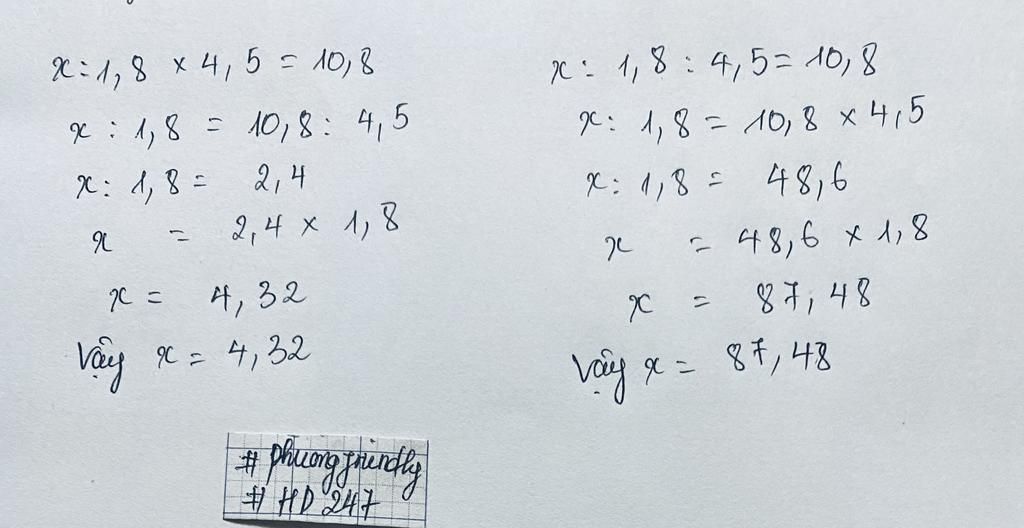 x : 1,8 x 4,5 = 10,8
x : 1,8 = 10,8 : 4,5
x : 1,8 = 2,4
x = 2,4 x 1,8
x = 4,32
Vậy x = 4,32
x : 1,8 : 4,5 = 10,8
x : 1,8 = 10,8 x 4,5
x : 1,8 = 48,6
x = 48,6 x 1,8
x = 87,48
Vậy x = 87,48
# phuongfriendly
# HD 247